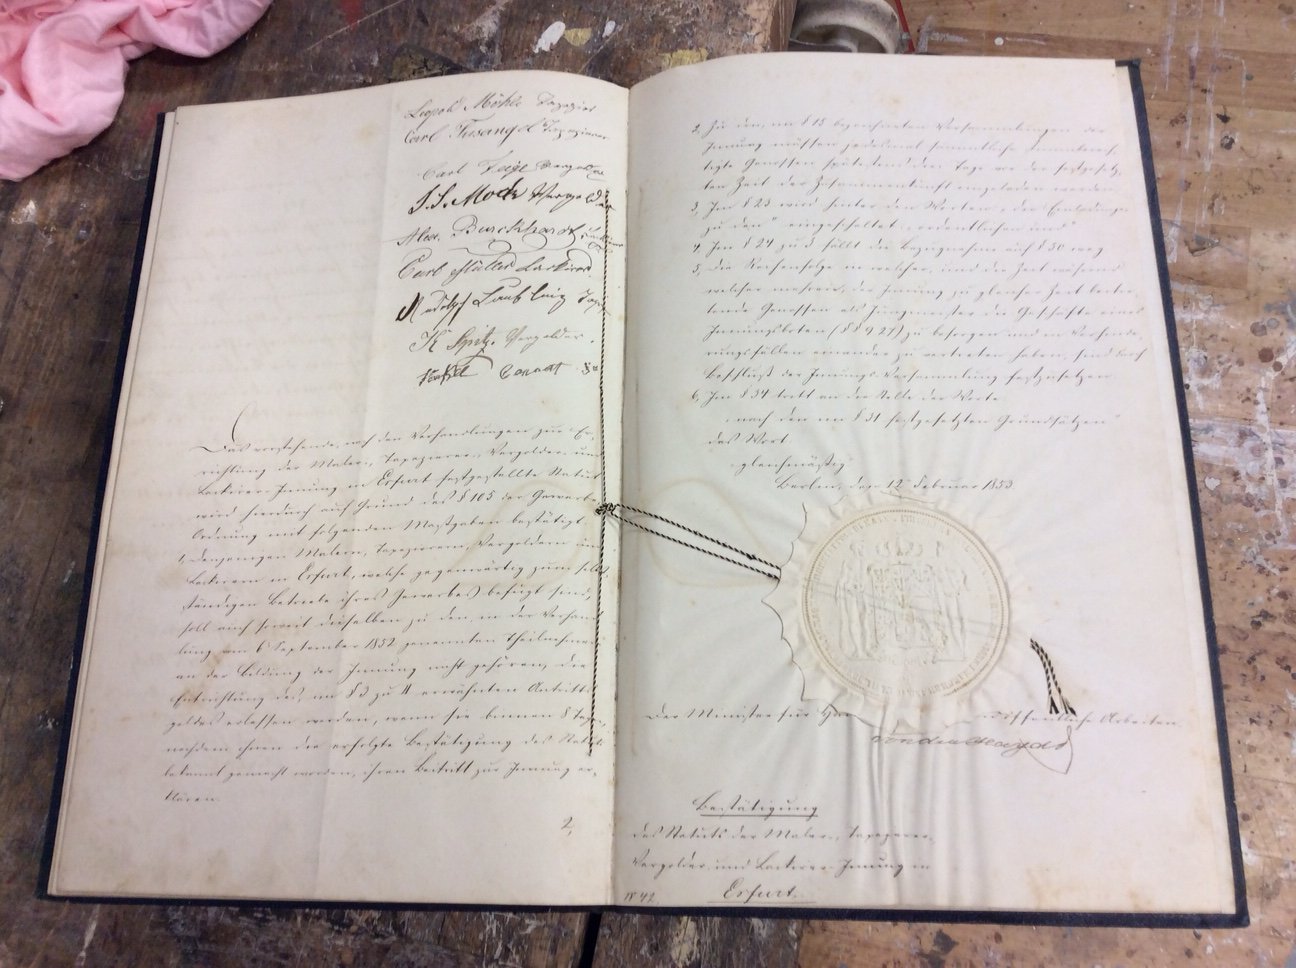 Leopold Möhle Tapezier
Carl Fusangel Tapezierer
Carl Feige Vergolder
J. S. Mock Vergolder
Alex. Burckhardt
Carl Müller Lackirer
Rudolph Laufling
K Spitz. Vergolder.
Das vorstehende, nach den Verhandlungen zur Er-
richtung der Maler-, Tapezierer-, Vergolder- und
Lackirer-Innung in Erfurt festgestellte Statut
wird hierdurch auf Grund des § 105 der Gewerbe-
Ordnung mit folgenden Maßgaben bestätigt.
1, denjenigen Malern, Tapezierern, Vergoldern und
Lackirern in Erfurt, welche gegenwärtig zum selbst-
ständigen Betriebe ihres Gewerbes befugt sind,
soll auch soweit dieselben zu den, in der Verhand-
lung vom 6 September 1852 genannten Theilnehmern
an der Bildung der Innung nicht gehören, die
Entrichtung des, im § 3 zu 4 erwähnten Antritts-
geldes erlassen werden, wenn sie binnen
nachdem ihnen die erfolgte Bestätigung des Statuts
bekannt gemacht worden, ihren Beitritt zur Innung er-
klären.
2,
2, Zu den, im § 18 bezeichneten Versammlungen der
Innung müssen jedesmal sämmtliche stimmberech-
tigte Genossen spätestens den Tag vor der festgesetz-
ten Zeit der Zusammenkunft eingeladen werden.
3, Im § 23 wird hinter den Worten "der Einladung
zu den" eingeschaltet "ordentlichen und"
4, Im § 24 zu 3 fällt die Bezugnahme auf § 30 weg
5, die Reihenfolge in welcher, und die Zeit während
welcher mehrere, der Innung zu gleicher Zeit beitre-
tende Genossen als Jungmeister die Geschäfte eines
Innungsboten (§ § 9 27) zu besorgen und in Verhinde-
rungsfällen einander zu vertreten haben, sind durch
Beschluß der Innungs-Versammlung festzusetzen.
6, Im § 34 tritt an die Stelle der Worte
"nach den im § 31 festgesetzten Grundsätzen"
das Wort
"gleichmäßig"
Berlin, den 12 Februar 1853
Der Minister für Han öffentliche Arbeiten
von der Heydt
Bestätigung
des Statuts der Maler-, Tapezierer-,
Vergolder- und Lackirer-Innung in
Erfurt.